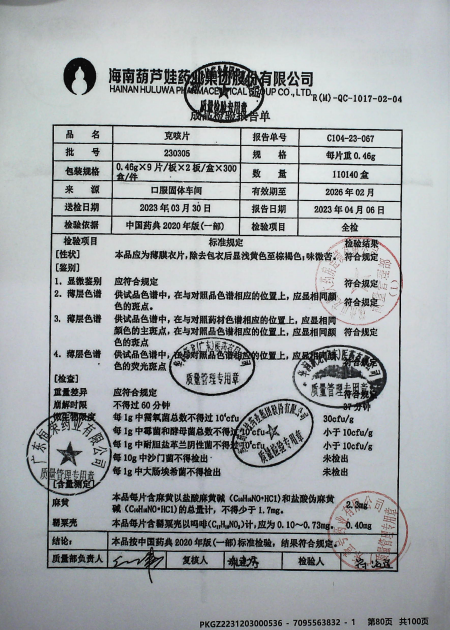 海南葫芦娃药业集团股份有限公司
HAINAN HULUWA PHARMACEUTICAL GROUP CO., LTD.
R(M)-QC-1017-02-04
成品检验报告单
品 名 克咳片 报告单号 C104-23-067
批 号 230305 规 格 每片重0.46g
包装规格 0.46g×9片/板×2板/盒×300盒/件 数 量 110140盒
来 源 口服固体车间 有效期至 2026年02月
送检日期 2023年03月30日 报告日期 2023年04月06日
检验依据 中国药典2020年版(一部) 检验项目 全检
检验项目 标准规定 检验结果
[性状] 本品应为薄膜衣片,除去包衣后显浅黄色至棕褐色;味微苦。 符合规定
[鉴别]
1. 显微鉴别 应符合规定 符合规定
2. 薄层色谱 供试品色谱中,在与对照品色谱相应的位置上,应显相同颜 符合规定
色的斑点。
3. 薄层色谱 供试品色谱中,在与对照药材色谱相应的位置上,应显相同 符合规定
颜色的主斑点,在与对照品色谱相应的位置上,应显相同颜
色的斑点
4. 薄层色谱 供试品色谱中,在与对照品色谱相应的位置上,应显相同颜
色的荧光斑点
[检查]
重量差异 应符合规定 符合规定
崩解时限 不得过60分钟 37分钟
微生物限度 每1g中需氧菌总数不得过10⁴cfu 30cfu/g
每1g中霉菌和酵母菌总数不得过 小于10cfu/g
每1g中耐胆盐革兰阴性菌不得过 小于10cfu/g
每10g中沙门菌不得检出 未检出
每1g中大肠埃希菌不得检出 未检出
[含量测定]
麻黄 本品每片含麻黄以盐酸麻黄碱(C₁₀H₁₅NO·HCl)和盐酸伪麻黄 2.3mg
碱(C₁₀H₁₅NO·HCl)的总量计,不得少于1.7mg。
罂粟壳 本品每片含罂粟壳以吗啡(C₁₇H₁₉NO₃)计,应为0.10~0.73mg。 0.40mg
结论: 本品按中国药典2020年版(一部)标准检验,结果符合规定。
质量部负责人 复核人 检验人
质量管理专用章
质量管理专用章
质量管理专用章
PKGZ2231203000536 - 7095563832 - 1 第80页 共100页